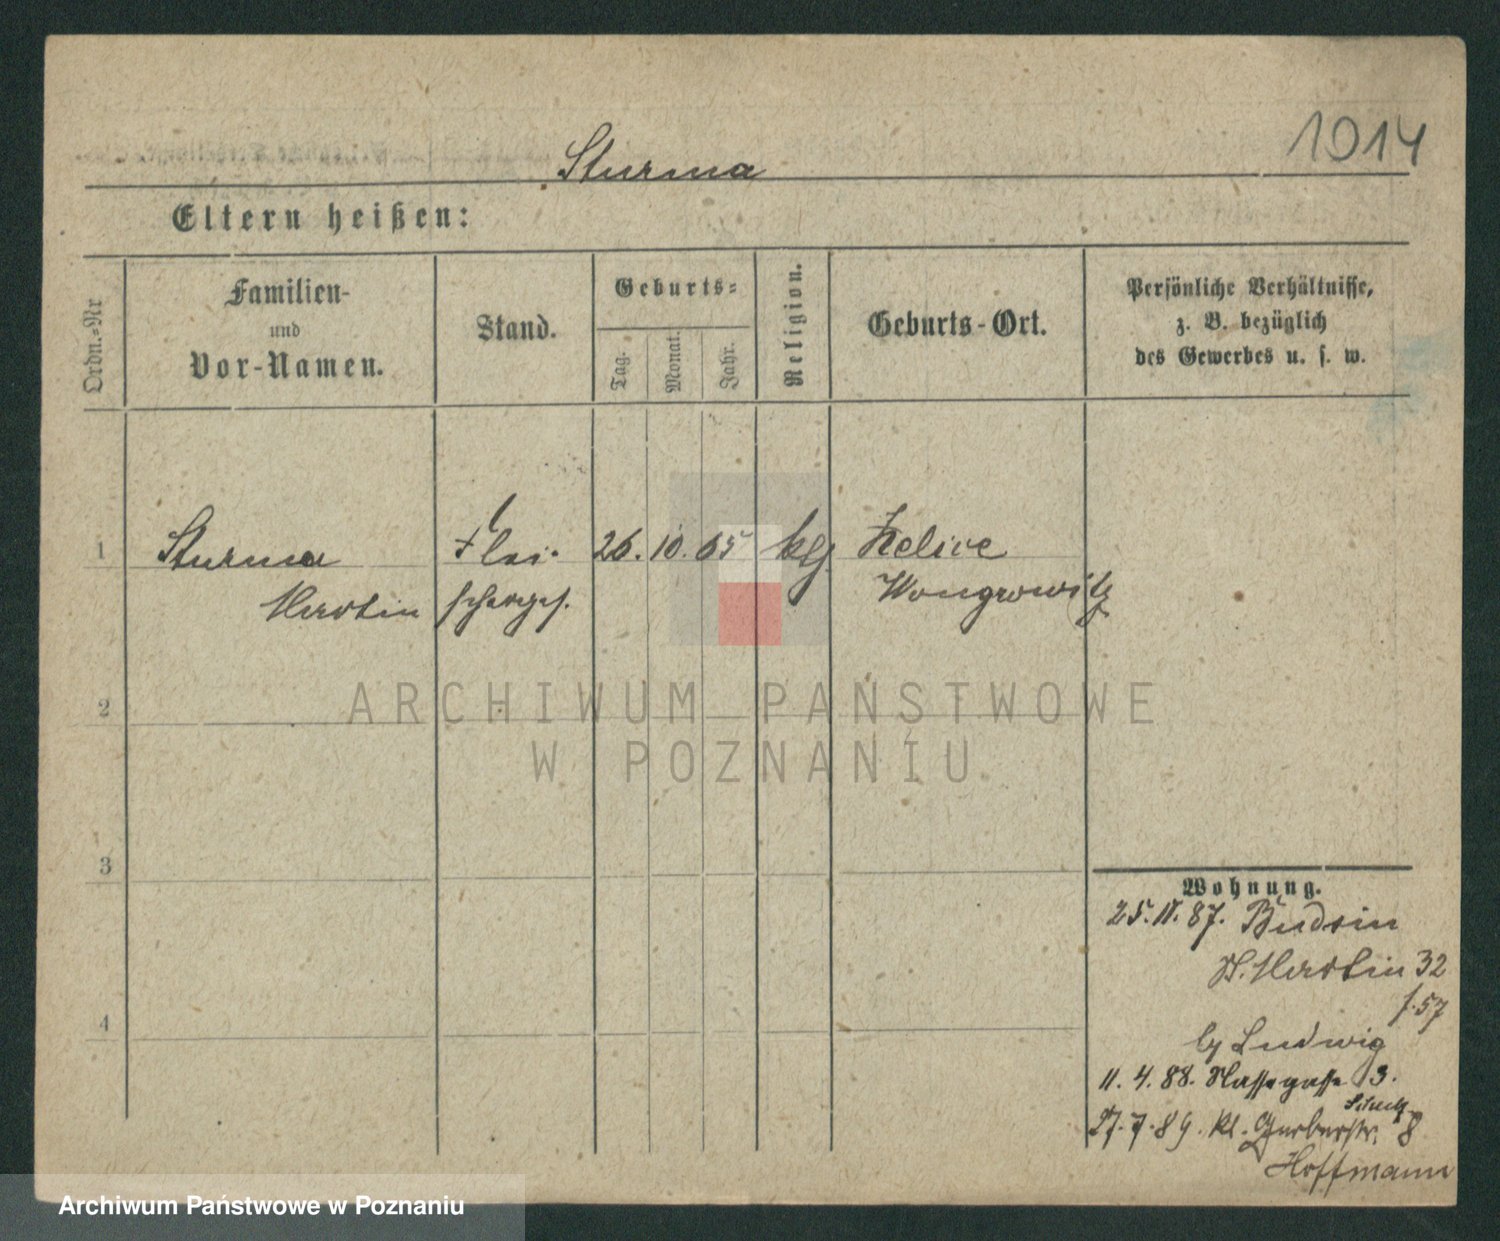 1914
Sturma
Eltern heißen:
Ordn.-Nr
Familien-
und
Vor-Namen.
Stand.
Geburts-
Tag.
Monat.
Jahr.
Religion.
Geburts-Ort.
Persönliche Verhältnisse,
z. B. bezüglich
des Gewerbes u. s. w.
1 Sturma Flei- 26. 10. 65 klg Zelice
Martin scherges. Wongrowitz
ARCHIWUM PAŃSTWOWE
W POZNANIU
2
3
4
Wohnung.
25. 11. 87. Budsin
St. Martin 32
f. 57
by Ludwig
11. 4. 88. Nassegasse 3.
27. 7. 89. Kl. Gerberstr. 8
Hoffmann
Archiwum Państwowe w Poznaniu